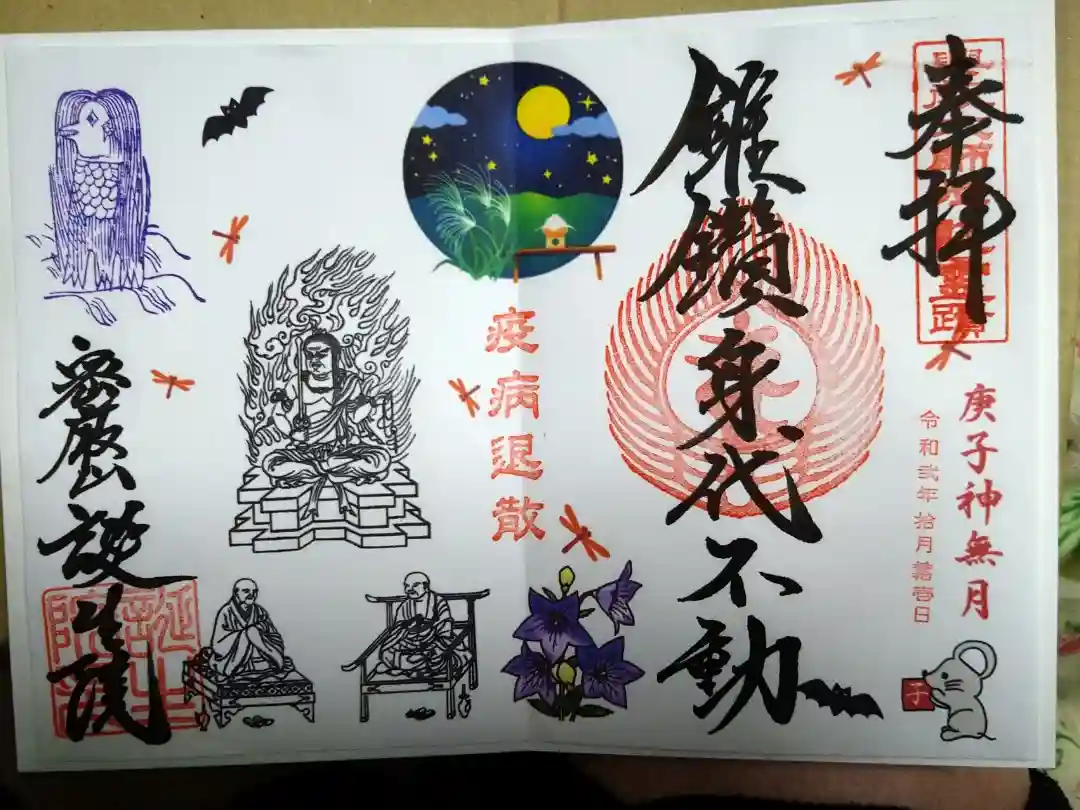 奉拝
庚子神無月
令和弐年拾月壱日
子
錐鑽身代不動
疫病退散
密厳山誕生院